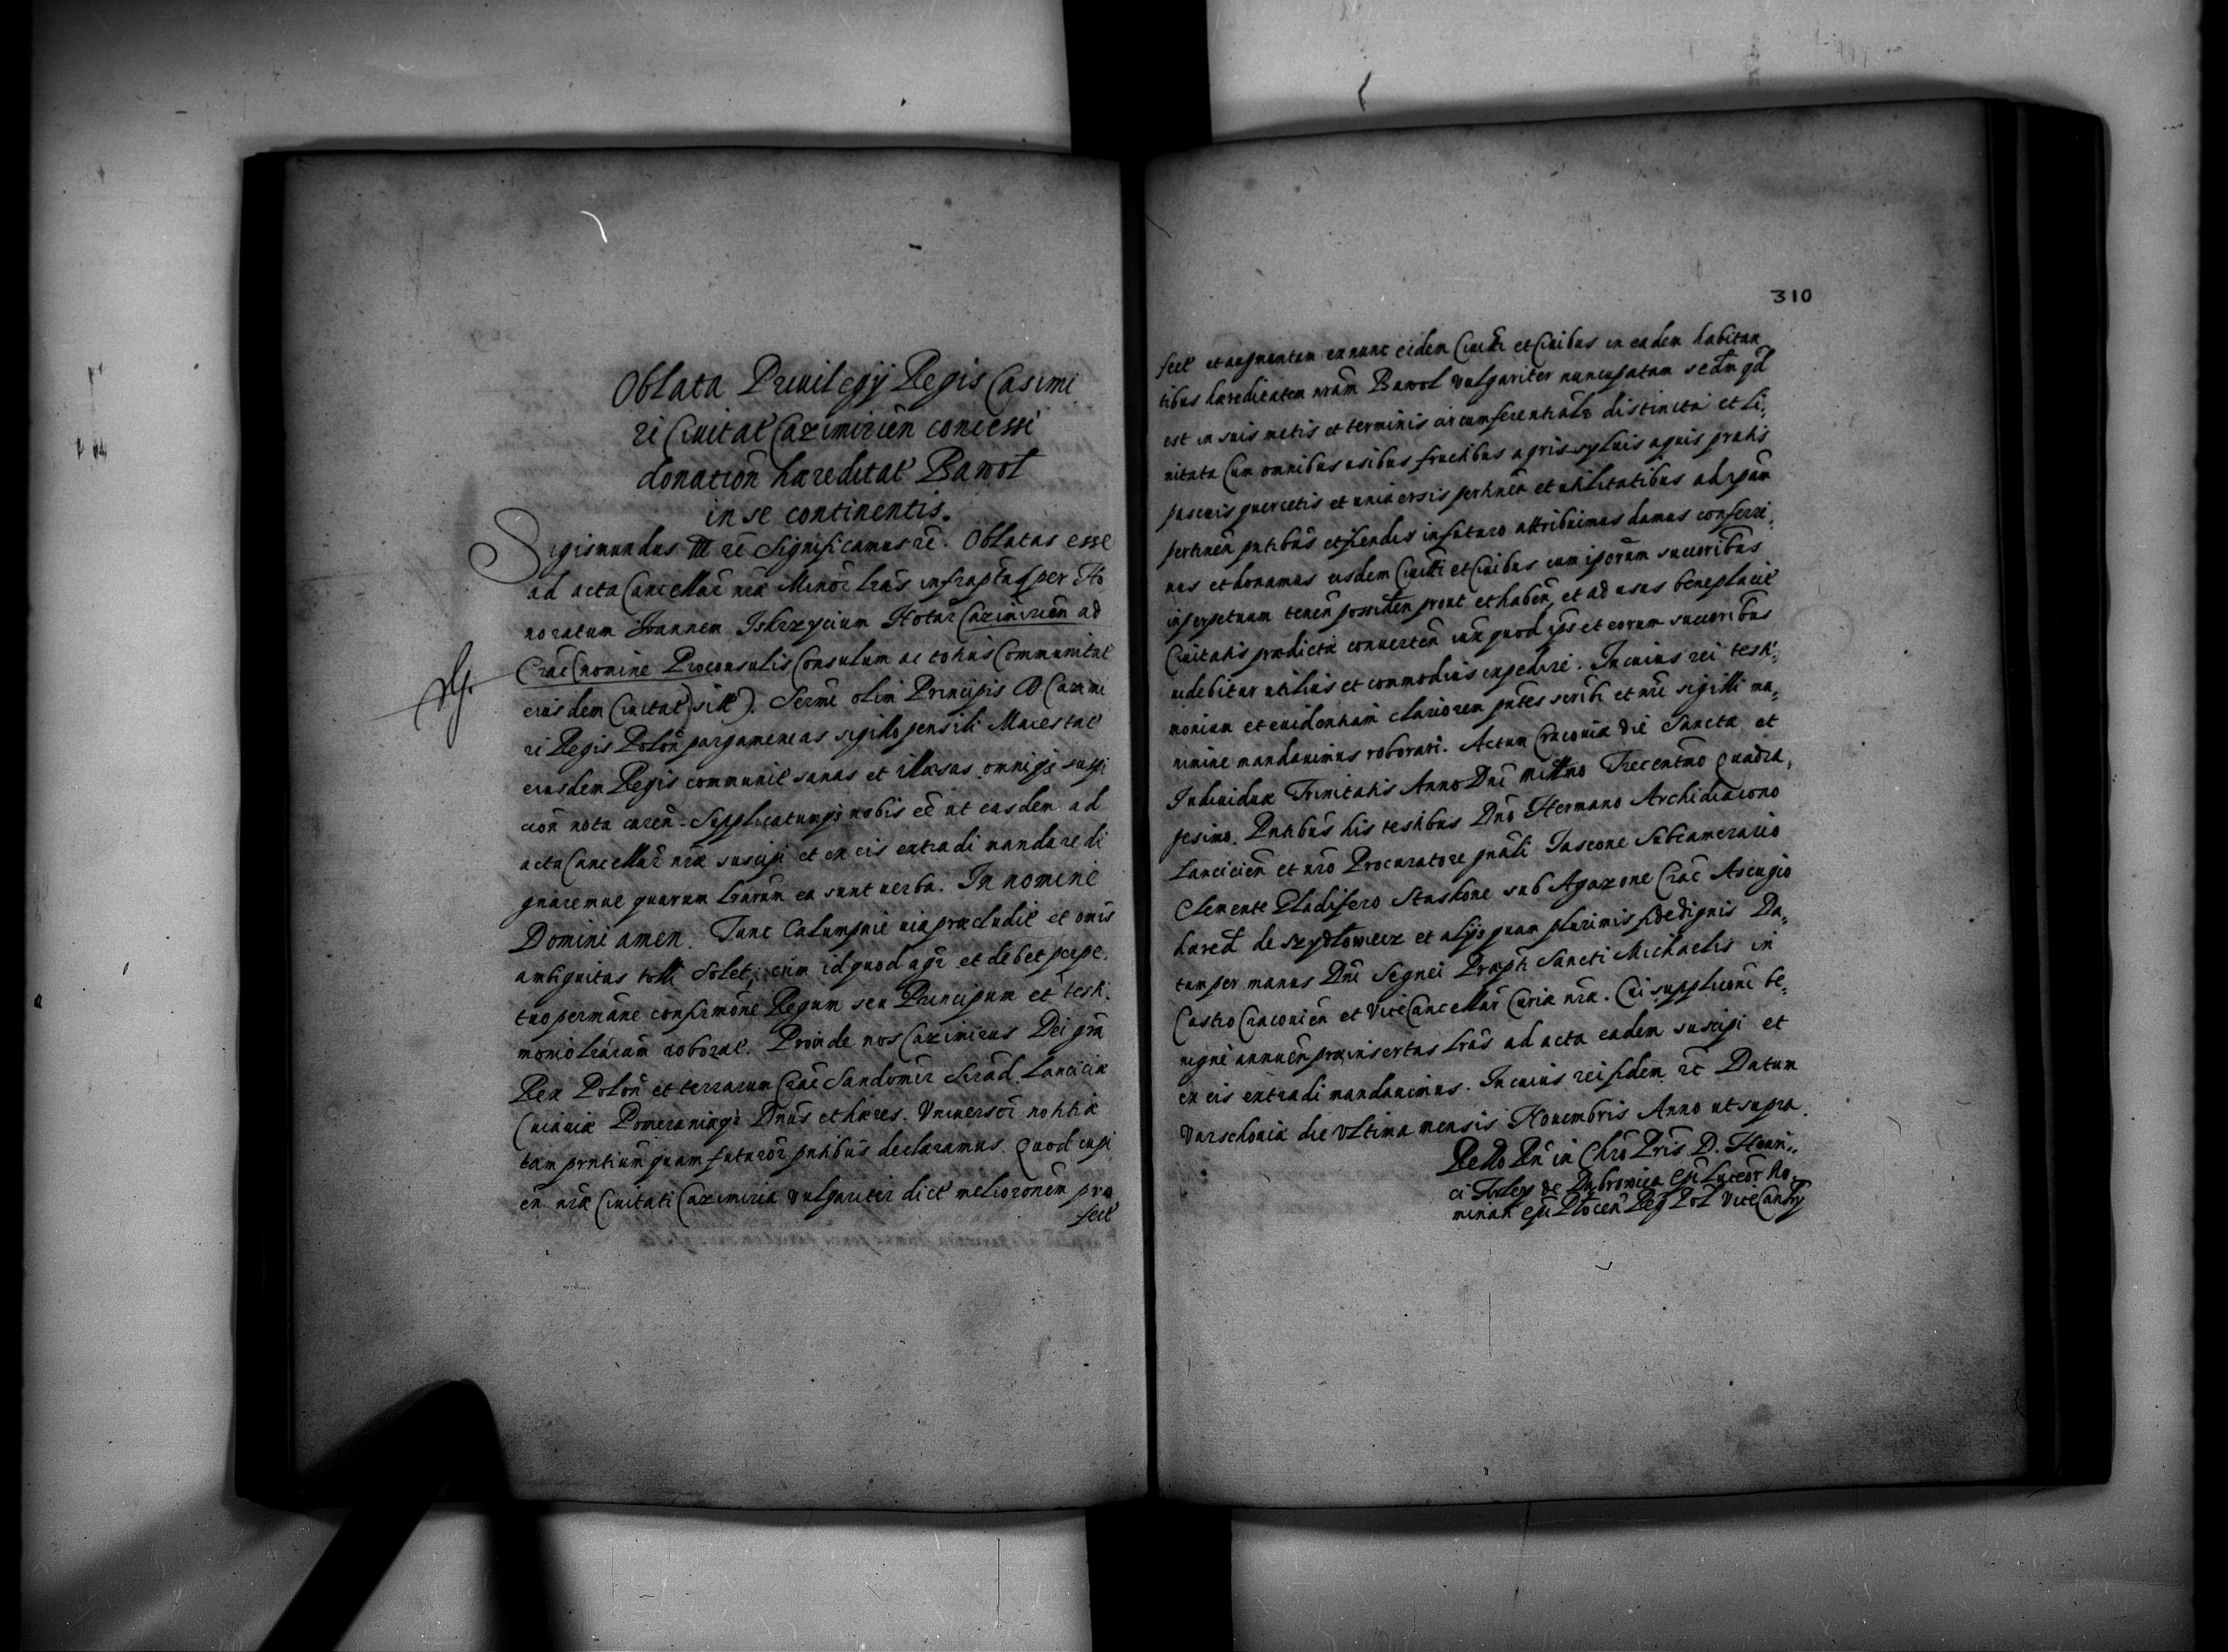 Oblata Priuilegij Regis Casimi
ri Ciuitat Cazimirien̄ concessi
donation̄ hæreditat Bawoł
in se continentis.
Sigismundus III rc̄ Significamus rc̄. Oblatas esse
ad acta Cancellar̄ nr̄æ Minor̄ lrās infraptas per Ho
noratum Joannem Iskrzycium Notar̄ Cazimirien̄ ad
Crac̄ (nomine Proconsulis Consulum ac totius Communitat
eiusdem Ciuitat) sitt). Serm̄i olim Principis D Cazimi
ri Regis Polon̄ pargameneas sigillo pensili Maiestat
eiusdem Regis communit sanas et illæsas omniqȝ suspi
cion̄ nota caren̄. Supplicatumqȝ nobis eē ut easdem ad
acta Cancellar̄ nr̄æ suscipi et ex eis extradi mandare di
gnaremur quarum lrārum ea sunt uerba. In nomine
Domini amen. Tunc Calumpnie uia præcludit et om̄is
ambiguitas tolli solet, cum id quod agr̄ et debet perpe
tuo perman̄e confirmōne Regum seu Principum et testi
monio lrārum roborat. Proinde nos Cazimirus Dei grā
Rex Polon̄ et terrarum Crac̄ Sandomir̄ Sirad. Lanciciæ
Cuiauiæ Pomeraniæqȝ Dnūs et hæres. Vniuersor̄ notitiæ
tam prn̄tium quam futuror̄ pn̄tibus declaramus. Quod cupi
en̄ nr̄æ Ciuitati Cazimiria vulgariter dict meliorōnem pro
fect
310
fect et augmentum ex nunc eidem Ciuitti et Ciuibus in eadem habitan
tibus hæreditatem nrām Bawoł vulgariter nuncupatam sedm̄ qd̄
est in suis metis et terminis circumferentialr̄ distincta et li,
mitata Cum omnibus usibus fructibus agris syluis aquis pratis
pascuis quercetis et uniuersis pertinen̄ et utilitatibus ad ipam̄
pertinen̄ pn̄tibus et fiendis in futuro attribuimus damus conferri,
mus et donamus eisdem Ciuitti et Ciuibus cum ipsorum successoribus
in perpetuum tenen̄ possiden̄ prout et haben̄, et ad usus beneplacit
Ciuitatis prædictæ conuerten̄ iux quod ips̄ et eorum successoribus
uidebitur utilius et commodius expedire. In cuius rei testi,
monium et euidentiam clariorem pn̄tes scribi et nrī sigilli mu,
nimine mandauimus roborari. Actum Cracouiæ die Sanctæ et
Indiuiduæ Trinitatis Anno Dni Mill̄mo Trecentm̄o Quadra,
gesimo. Pn̄tibus his testibus Dnō Hermano Archidiacono
Lancicien̄ et nrō Procuratore gnāli Jascone Subcamerario
Clemente Gladifero Staskone sub Agazone Crac̄ Ascugio
hæred̄ de Szydłowiecz et alijs quam plurimis fidedignis Da,
tum per manus Dnī Segnei Præpti Sancti Michaelis in
Castro Cracouien̄ et ViceCancellar̄ Curiæ nr̄æ. Cui supplicōni be,
nigne annuen̄ præinsertas lrās ad acta eadem suscipi et
ex eis extradi mandauimus. In cuius rei fidem rc̄ Datum
Varschouiæ die ultima mensis Nouembris Anno ut supra.
Rello Rn̄ in Chrō Pris D. Henri,,
ci Firley de Dąbrowica Epī Luceor̄ No,
minati Epī Plocen̄ Reg̃ Pol ViceCancry